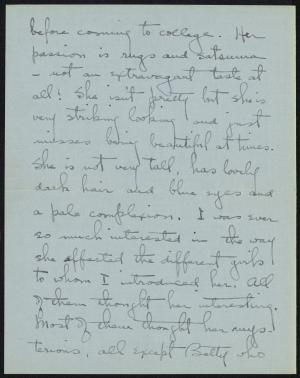 before coming to college. Her
passion is rugs and satsuma
- not an extravagant taste at
all! She isn't pretty but she is
very striking looking and just
misses being beautiful at times.
She is not very tall, has lovely
dark hair and blue eyes and
a pale complexion. I was ever
so much interested in the way
she affected the different girls
to whom I introduced her. All
of them thought her interesting.
Most of them thought her mys-
terious, all except Betty who